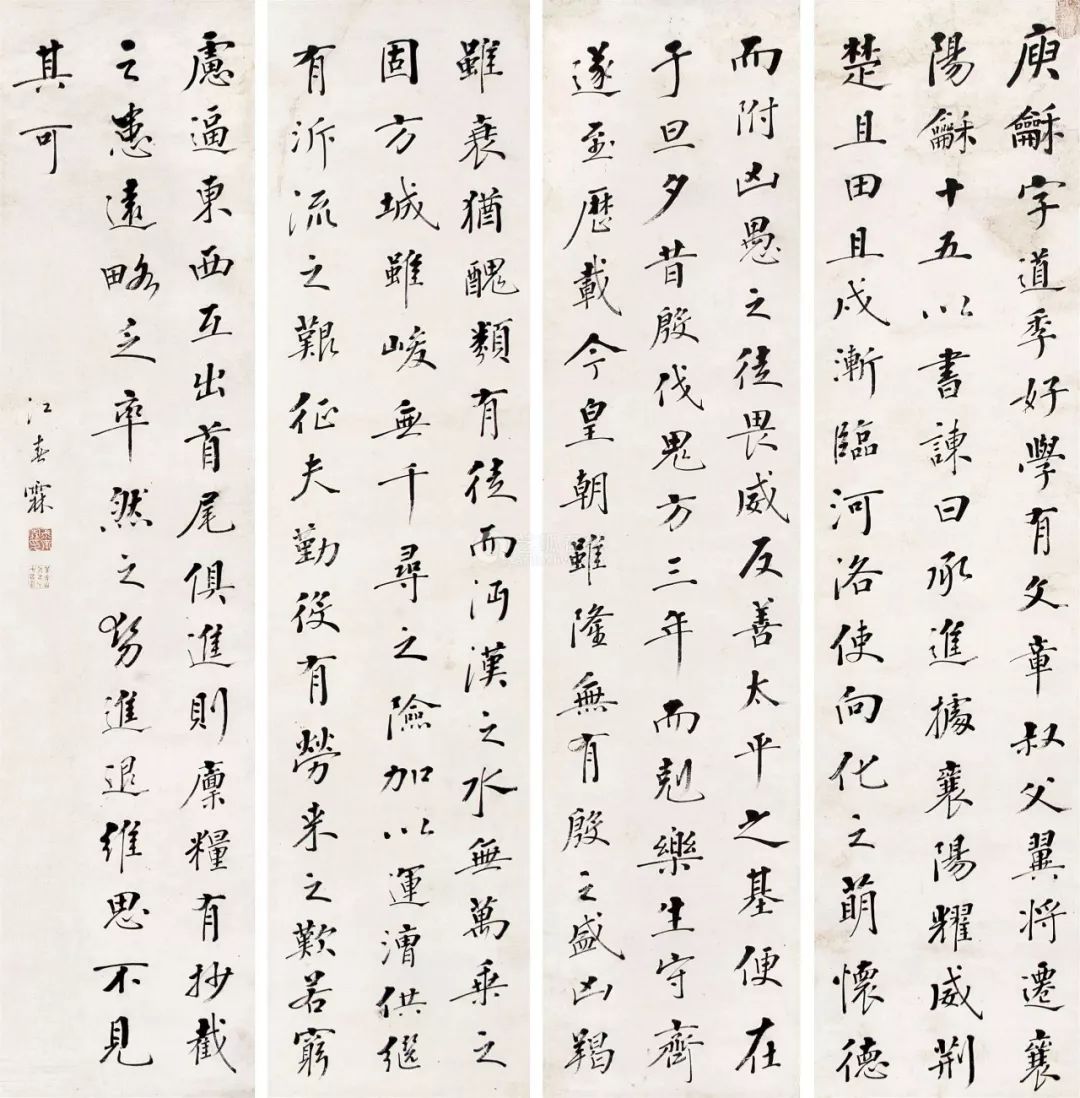 庾龢字道季好學有文章叔父翼将遷襄
陽龢十五以書諫曰承進據襄陽耀威荊
楚且田且戍漸臨河洛使向化之萌懷德
而附凶愚之徒畏威反善太平之基便在
于旦夕昔殷伐鬼方三年而剋樂生守齊
遂至歷載今皇朝雖隆無有殷之盛凶羯
雖衰猶醜類有徒而沔漢之水無萬乘之
固方城雖峻無千尋之險加以運漕供繼
有泝流之艱征夫勤役有勞来之歎若窮
慮逼東西互出首尾俱進則廩糧有抄截
之患遠略乏率然之勢進退維思不見
其可
江春霖